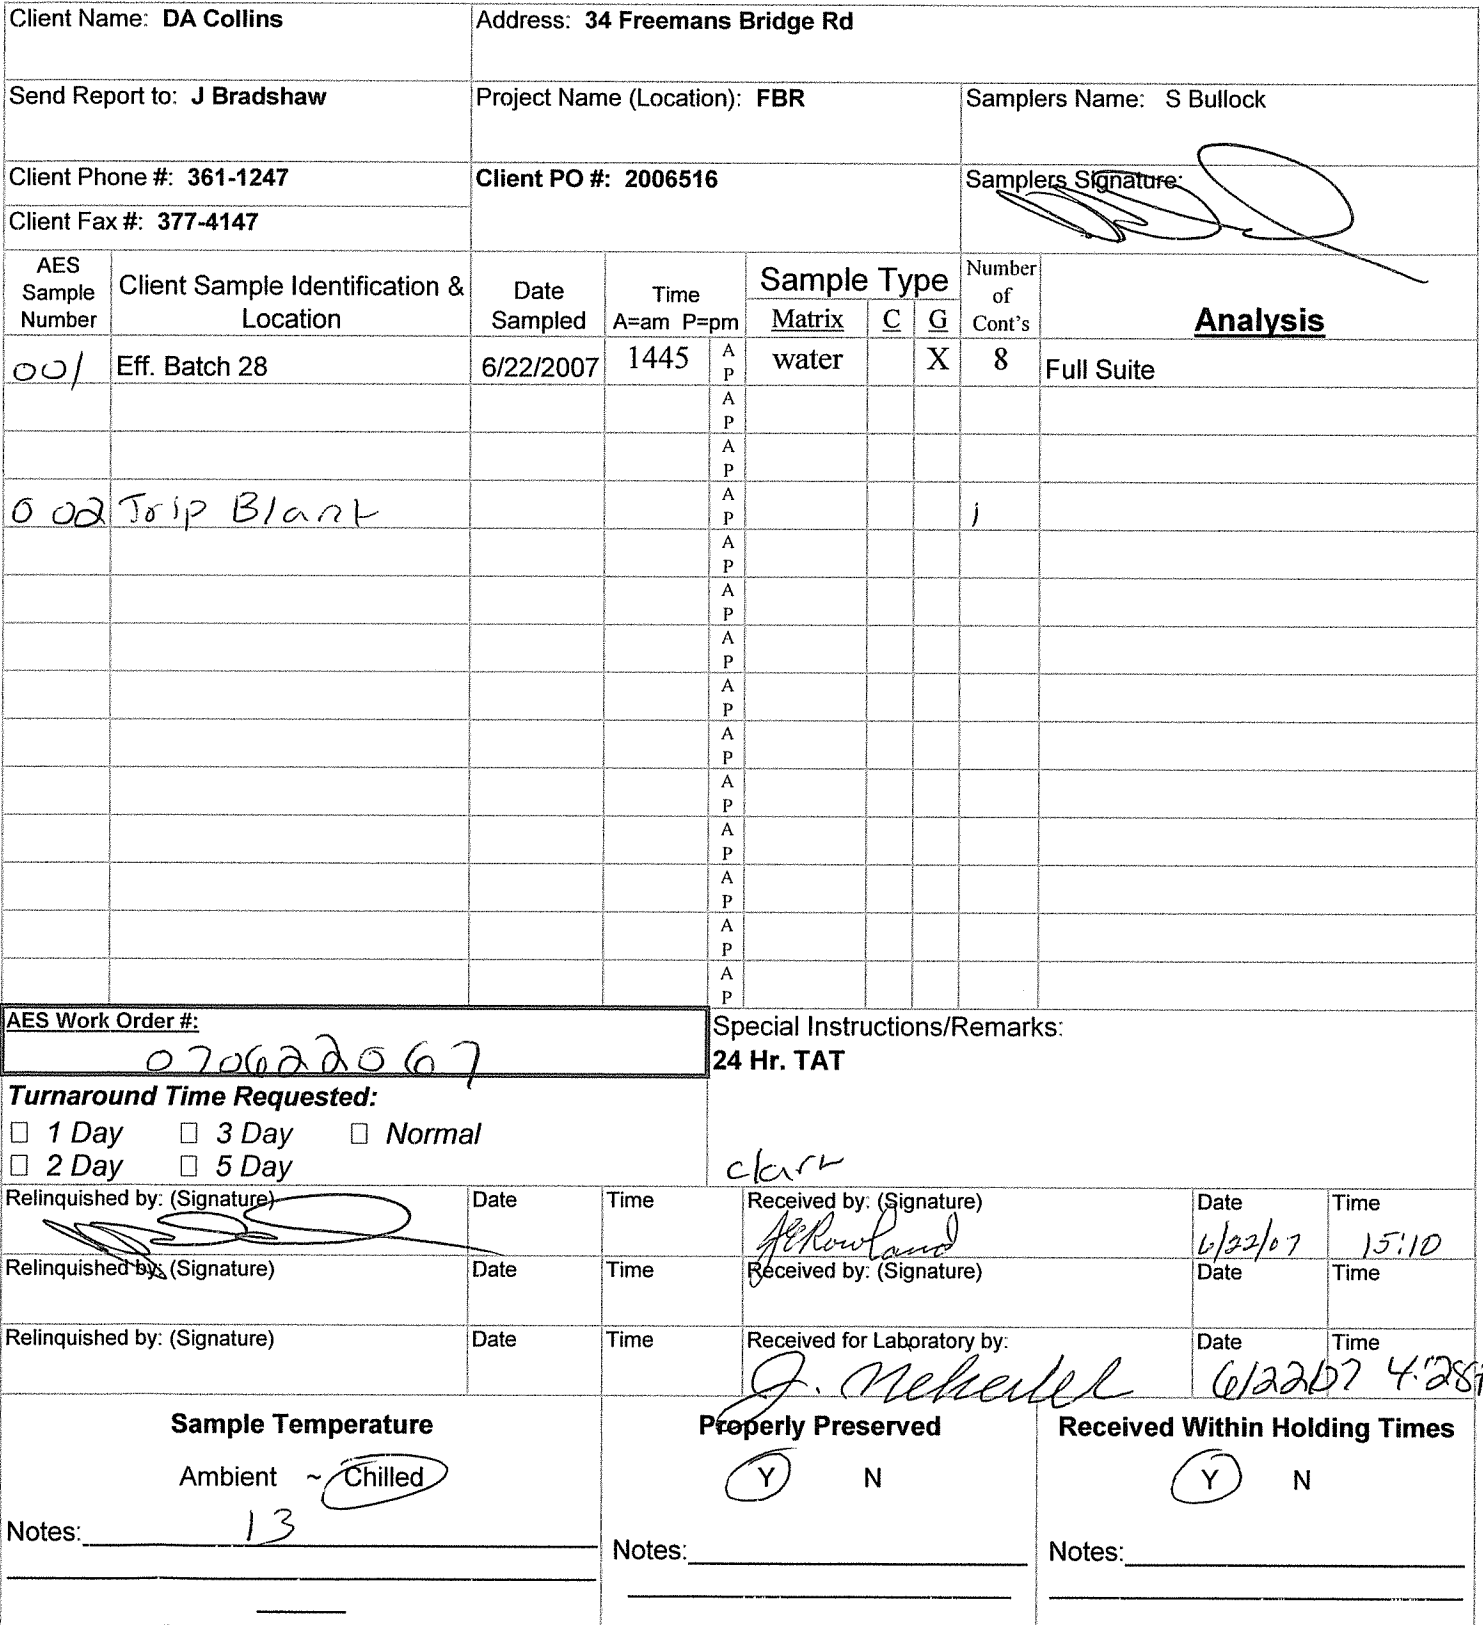 Client Name: DA Collins
Address: 34 Freemans Bridge Rd
Send Report to: J Bradshaw
Project Name (Location): FBR
Samplers Name: S Bullock
Client Phone #: 361-1247
Client PO #: 2006516
Samplers Signature:
Client Fax #: 377-4147
AES Sample Number
Client Sample Identification & Location
Date Sampled
Time A=am P=pm
Sample Type
Matrix C G
Number of Cont's
Analysis
001 Eff. Batch 28 6/22/2007 1445 A P water X 8 Full Suite
A P
A P
002 Trip Blank A P 1
A P
A P
A P
A P
A P
A P
A P
A P
A P
A P
AES Work Order #:
070622067
Special Instructions/Remarks:
24 Hr. TAT
Turnaround Time Requested:
☐ 1 Day ☐ 3 Day ☐ Normal
☐ 2 Day ☐ 5 Day
Relinquished by: (Signature) Date Time Received by: (Signature) Date Time
JERowland 6/22/07 15:10
Relinquished by: (Signature) Date Time Received by: (Signature) Date Time
Relinquished by: (Signature) Date Time Received for Laboratory by: Date Time
6/22/07 4:28
Sample Temperature
Ambient ~ Chilled
Notes: 13
Properly Preserved
Y N
Notes:
Received Within Holding Times
Y N
Notes: